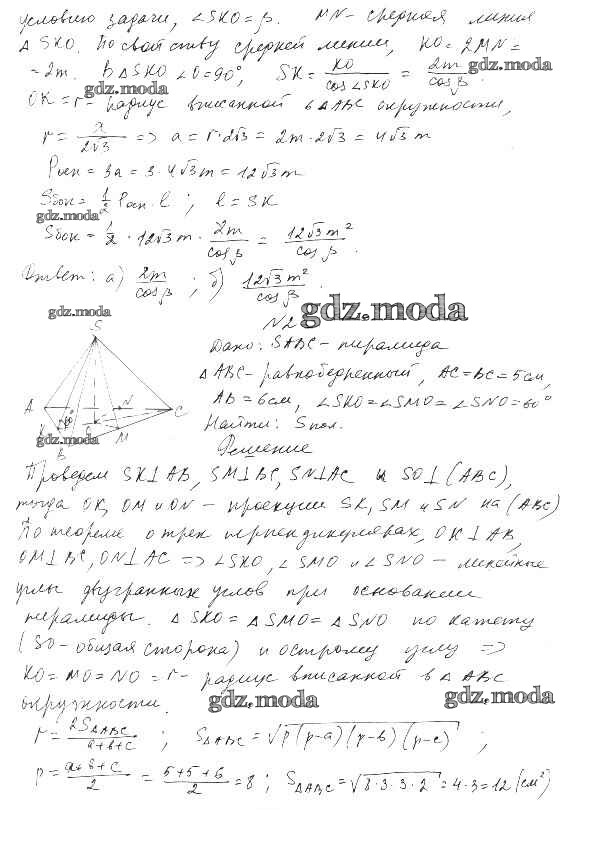 условию задачи, ∠SKO = β. MN – средняя линия
△SKO. По свойству средней линии, KO = 2MN =
= 2m. В △SKO ∠O = 90°, SK = KO / cos∠SKO = 2m / cosβ.
gdz.moda
gdz.moda
OK = r – радиус вписанной в △ABC окружности,
r = a / 2√3 => a = r·2√3 = 2m·2√3 = 4√3 m
Pосн = 3a = 3·4√3 m = 12√3 m
Sбок = 1/2 Pосн·l ; l = SK
gdz.moda
Sбок = 1/2 · 12√3 m · 2m / cosβ = 12√3 m² / cosβ.
Ответ: а) 2m / cosβ ; б) 12√3 m² / cosβ.
gdz.moda
gdz.moda
N2
S
Дано: SABC – пирамида
△ABC – равнобедренный, AC = BC = 5 см,
AB = 6 см, ∠SKO = ∠SMO = ∠SNO = 60°
Найти: Sпол.
A
N
C
K
60°
O
M
B
gdz.moda
Решение
Проведем SK⊥AB, SM⊥BC, SN⊥AC и SO⊥(ABC),
тогда OK, OM и ON – проекции SK, SM и SN на (ABC)
По теореме о трех перпендикулярах, OK⊥AB,
OM⊥BC, ON⊥AC => ∠SKO, ∠SMO и ∠SNO – линейные
углы двугранных углов при основании
пирамиды. △SKO = △SMO = △SNO по катету
(SO – общая сторона) и острому углу =>
KO = MO = NO = r – радиус вписанной в △ABC
окружности.
gdz.moda
gdz.moda
r = 2S△ABC / a+b+c ; S△ABC = √p(p-a)(p-b)(p-c) ;
p = a+b+c / 2 = 5+5+6 / 2 = 8 ; S△ABC = √8·3·3·2 = 4·3 = 12 (см²)